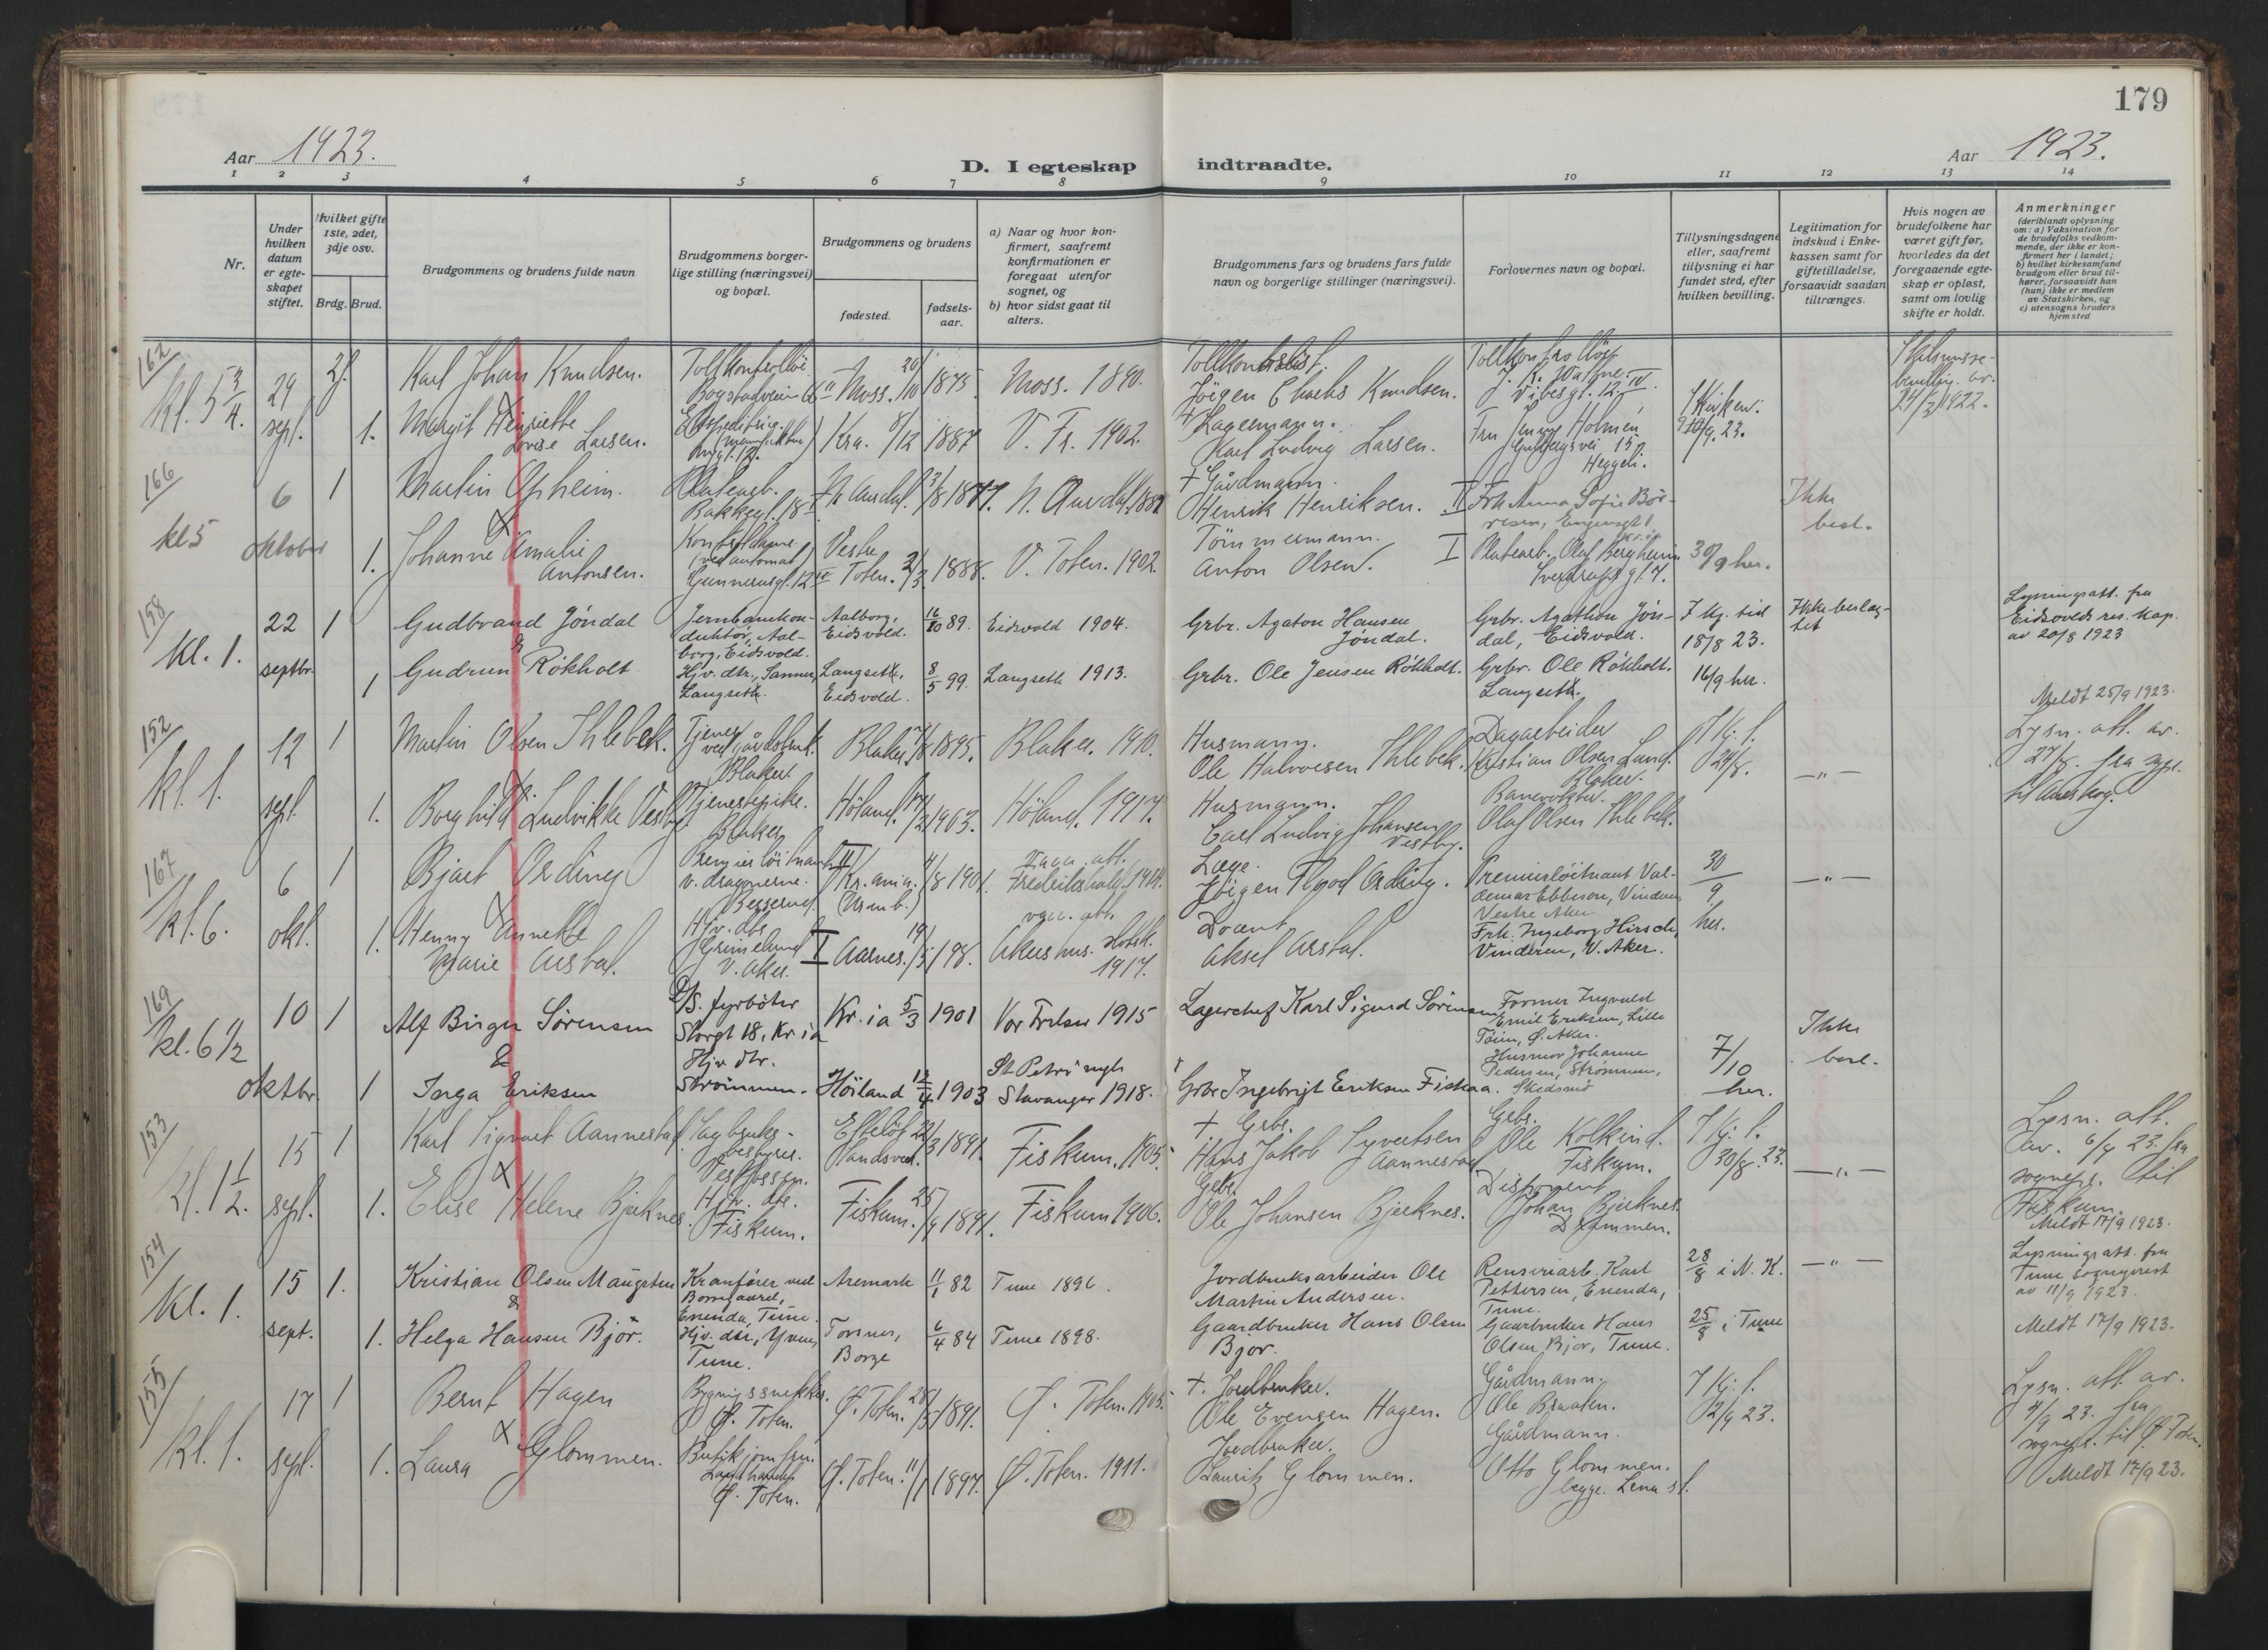 179
Aar 1923.
D. I egteskap indtraadte.
Aar 1923.
1 2 3 4 5 6 7 8 9 10 11 12 13 14
Nr.
Under hvilken datum er egteskapet stiftet.
Hvilket gifte 1ste, 2det, 3dje osv.
Brdg. Brud.
Brudgommens og brudens fulde navn
Brudgommens borgerlige stilling (næringsvei) og bopæl.
Brudgommens og brudens
fødested.
fødselsaar.
a) Naar og hvor konfirmert, saafremt konfirmationen er foregaat utenfor sognet, og
b) hvor sidst gaat til alters.
Brudgommens fars og brudens fars fulde navn og borgerlige stillinger (næringsvei).
Forlovernes navn og bopæl.
Tillysningsdagene eller, saafremt tillysning ei har fundet sted, efter hvilken bevilling.
Legitimation for indskud i Enkekassen samt for giftetilladelse, forsaavidt saadan tiltrænges.
Hvis nogen av brudefolkene har været gift før, hvorledes da det foregaaende egteskap er opløst, samt om lovlig skifte er holdt.
Anmerkninger
(deriblandt oplysning om: a) Vaksination for de brudefolks vedkommende, der ikke er konfirmert her i landet; b) hvilket kirkesamfund brudgom eller brud tilhører, forsaavidt han (hun) ikke er medlem av Statskirken, og c) utensogns bruders hjemsted
162
kl. 5 3/4.
29 sept.
2. Karl Johan Knudsen.
Moss. 20/10 1875 Moss. 1890.
Jörgen Charles Knudsen.
1. Margit Henriette Lovise Larsen.
Kra. 8/12 1887 V. Fr. 1902.
Karl Ludvig Larsen.
Fru Jenny Holmen
Heggeli.
166
kl 5
6 oktober
1 Martin Opheim.
Bakkegt. 18
N. Aurdal.
+ Gårdmann.
Henrik Henriksen.
II Frk. Anna Sofie
Ikke besl.
1. Johanne Amalie Antonsen.
ved automat
Gunnerusgt. 12
Vestre Toten. 2/3 1888. V. Toten. 1902.
Tömmermann.
Anton Olsen.
I Platearb. Olaf Bergheim
30/9 her.
158
kl. 1.
22 septbr.
1 Gudbrand Jöndal
Jernbanekonduktör, Aalborg, Eidsvold.
Aalborg, Eidsvold. 16/10 89. Eidsvold 1904.
Grbr. Agaton Hansen Jöndal.
Grbr. Agathon Jöndal, Eidsvold.
7 kg. tid 18/8 23.
Ikke beslagtet
Lysningsatt. fra Eidsvolds res. kap. av 20/8 1923
&
1 Gudrun Rökholt
Hjv. dtr., Sanner, Langseth.
Langseth, Eidsvold. 8/5 99. Langseth 1913.
Grbr. Ole Jensen Rökholt.
Grbr. Ole Rökholt. Langseth.
16/9 her.
Meldt 25/9 1923.
152
kl. 1.
12 sept.
1 Martin Olsen Ihlebek.
Blaker.
Blaker. 1895. Blaker. 1910.
Husmann.
Ole Halvorsen Ihlebek.
Dagarbeider
Kristian Olsen Lund. Blaker.
7 kj. l.
— " —
Lysn. att. av. 27/8. fra
til Aurskog.
1. Borghild Ludvikke Vestby.
Tjenestepike. Blaker
Höland. 17/2 1903. Höland. 1917.
Husmann.
Carl Ludvig Johansen Vestby.
Banevokter.
Olaf Olsen Ihlebek.
167
kl. 6.
6 okt.
1 Bjart Ording
Premierlöitnant v. dragonerne.
II Kr.ania. 4/8 1901.
Læge.
Jörgen Flood Ording.
Premierlöitnant Valdemar Ebbeson, Vinderen, Vestre Aker
30/9 her.
— " —
1. Henny Annette Marie Arstal.
Hjv. dtr Grimelund V. Aker.
I Aarnes. 19/5 98. Akershus. slotsk. 1917.
Docent
Aksel Arstal.
Frk. Ingeborg Hirsch, Vinderen, V. Aker.
169
kl. 6 1/2
10 oktbr.
1 Alf Birger Sörensen
D/S. fyrböter Storgt 18, Kr.ia
Kr.ia 5/3 1901 Vor Frelser 1915
Lagerchef Karl Sigurd Sörensen
Former Ingvald Emil Eriksen, Lille Töien, Ö. Aker.
7/10 her.
Ikke besl.
&
1 Inga Eriksen
Hjv. dtr. Strömmen.
Höiland 12/4 1903 St Petri mgh Stavanger 1918.
Grbr Ingebrigt Eriksen Fiskaa.
Husmor Johanne Pedersen, Strömmen, Skedsmo
153
kl. 1 1/2.
15 sept.
1 Karl Sigvart Aannestad.
Sagbruksbestyrer. Vestfossen.
22/3 1891. Fiskum. 1905.
+ Grbr.
Hans Jakob Syvertsen Aannestad
Grbr.
Ole Kolkind. Fiskum.
7 kj. l. 30/8 23.
— " —
Lysn. att. av. 6/9 23. fra sognepr. til Fiskum.
Meldt 17/9 1923.
1. Elise Helene Bjerknes.
Hjv. dtr. Fiskum.
Fiskum. 25/9 1891. Fiskum 1906.
Grbr.
Ole Johansen Bjerknes.
Disponent
Johan Bjerknes Drammen.
154
kl. 1.
15 sept.
1. Kristian Olsen Maugsten
Kranförer ved Borregaard, Enenda, Tune.
Aremark 11/1 82 Tune 1896.
Jordbruksarbeider Ole Martin Andersen.
Renseriarb. Karl Pettersen, Enenda, Tune.
28/8 i N. K.
— " —
Lysningsatt. fra Tune sogneprest av 11/9 1923
&
1. Helga Hansen Björ.
Hjv. dtr., Yven, Tune.
Torsnes, Borge 6/4 84 Tune 1898.
Gaardbruker Hans Olsen Bjor.
Gaarbruker Hans Olsen Bjor, Tune.
25/8 i Tune
Meldt 17/9 1923.
155
kl. 1.
17 sept.
1 Bernt Hagen
Bygningssnekker. Ø. Toten.
Ø. Toten. 28/5 1891. Ø. Toten. 1905.
+. Jordbruker.
Ole Evensen Hagen.
Gårdmann.
Ole Braaten.
7 kj. l. 2/9 23.
Lysn. att. av. 4/9 23. fra sognepr. til Ø. Toten.
Meldt 17/9 23.
1. Laura Glommen.
Butikjomfru. Ø. Toten.
Ø. Toten. 11/1 1897. Ø. Toten. 1911.
Jordbruker.
Lauritz Glommen.
Gårdmann.
Otto Glommen.
begge. Lena st.